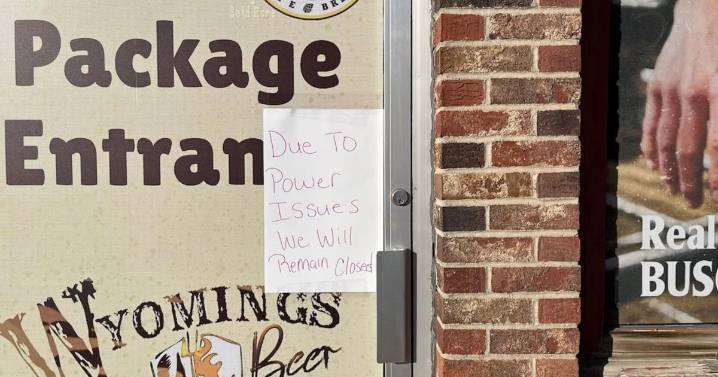 Package
Entran
Due To
Power
Issues
We Will
Remain Closed
WYOMINGS
Beer
Real
BUSC